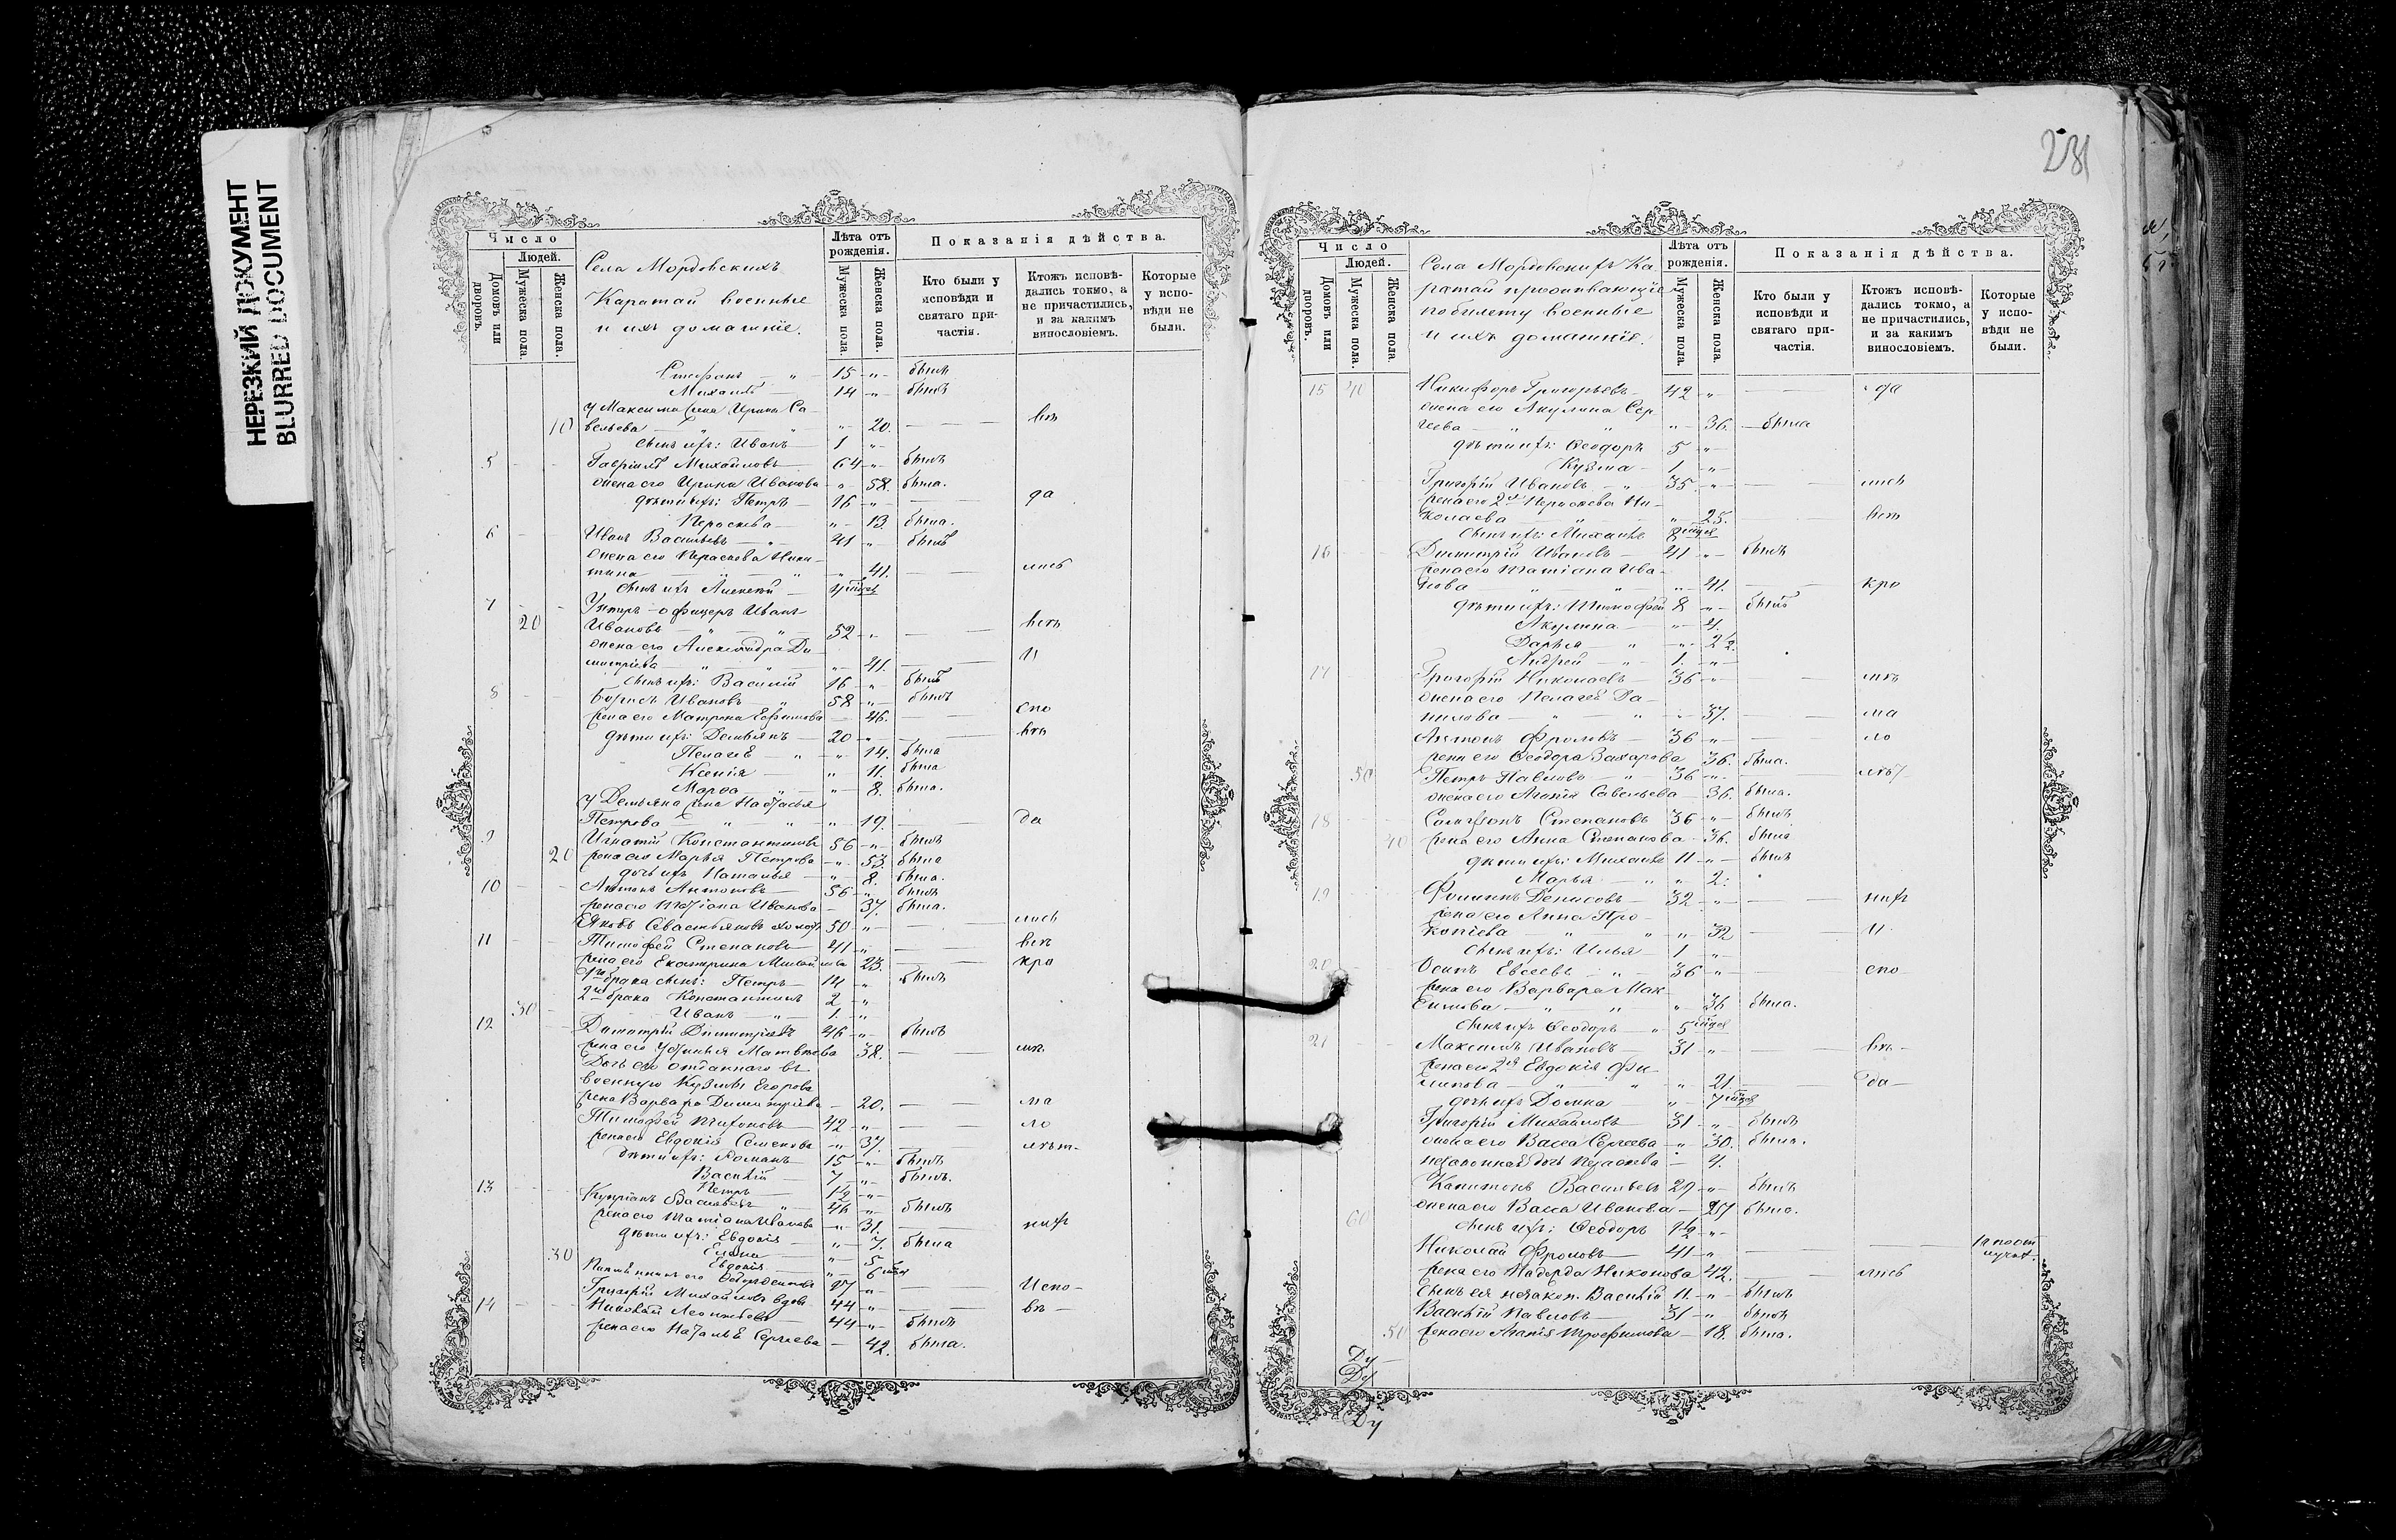 НЕРЕЗКИЙ ДОКУМЕНТ
BLURRED DOCUMENT
Число
Домовъ или дворовъ.
Людей.
Мужеска пола.
Женска пола.
Села Мордовскихъ
Каратай военные
и ихъ домашніе.
Лѣта отъ рожденія.
Мужеска пола.
Женска пола.
Показанія дѣйства.
Кто были у исповѣди и святаго причастія.
Ктожъ исповѣдались токмо, а не причастились, и за какимъ винословіемъ.
Которые у исповѣди не были.
Стефанъ — " — 15 — " — былъ
Михаилъ — 14 — " — былъ
у Максима жена Ирина Са-
10 вельева — " — 20.
сынъ ихъ: Иванъ — 1 "
5 — Гавріилъ Михайловъ — 64 — " — былъ
жена его Ирина Иванова — " — 58. была.
дѣти ихъ: Петръ — 16 — " — да
Параскева — " — 13. была.
6 — Иванъ Васильевъ — " 41 " былъ
жена его Параскева Ники-
тина — " — 41.
сынъ ихъ Алексѣй — 4
7 — Унтеръ-офицеръ Иванъ
20 Ивановъ — " — 52 — "
жена его Александра Ди-
митріева — " — 41. — и
сынъ ихъ: Василій 16 — " былъ
8 — Борисъ Ивановъ — " 58 — " былъ
жена его Матрона Ефимова — 46. — спо
дѣти ихъ: Демьянъ — 20 — "
Пелагеѣ — " — 14. была
Ксенія — " 11. была
Марѳа — " — 8. была.
у Демьяна жена Настасья
Петрова — " — 19. — да
9 Игнатій Константиновъ 56 — " былъ
20 жена его Марья Петрова — " — 53. была
дочь ихъ Наталья — " — 8. была.
10 — Антонъ Антоновъ — 56 — " — былъ
жена его Татіана Иванова — 37. была.
Яковъ Севастьяновъ холостъ 50 — "
11 Тимофей Степановъ — 41 — "
жена его Екатерина — 23. — кро
1го брака сынъ: Петръ — 14 " былъ
2го брака Константинъ 2 — "
30 Иванъ — " 1. "
12 Димитрій Димитріевъ 46 — " — былъ
жена его Устинья Матвѣева 38.
Дочь его отданнаго въ
военную Кузьмы Егорова
жена Варвара Димитріева — 20. — ма
Тимофей — 42 " — ло
жена его Евдокія Семенова — " 37.
дѣти ихъ: Романъ — 15 — " былъ
Василій — 7 — " былъ.
Петръ — 1½ — "
13 Купріанъ Васильевъ " 46 — " былъ
жена его Татіана Иванова — " 31. — нихъ
дѣти ихъ: Евдокія — " — 7. была
Елена — " — 5
30 Евдокія — " — 6
Племянникъ его — 27 — " — Испо-
Григорій Михайловъ вдовъ 44 — " — вѣ
14 Николай Леонтьевъ — 44 — " — былъ
жена его Наталья Сергеева — 42. была.
231
Число
Домовъ или дворовъ.
Людей.
Мужеска пола.
Женска пола.
Села Мордовскихъ Ка-
ратай проживающіе
по билету военные
и ихъ домашніе.
Лѣта отъ рожденія.
Мужеска пола.
Женска пола.
Показанія дѣйства.
Кто были у исповѣди и святаго причастія.
Ктожъ исповѣдались токмо, а не причастились, и за какимъ винословіемъ.
Которые у исповѣди не были.
15 40 Никифоръ Григорьевъ — 42 — " — да
жена его Акулина Сер-
геева — " — 36. — была
дѣти ихъ: Ѳеодоръ 5 " —
Кузма — 1 — "
Григорій Ивановъ — " 35 — "
жена его 2я Параскева Ни-
колаева — " — 25.
сынъ ихъ: Михаилъ 8
16 Димитрій Ивановъ — 41 — " былъ
жена его Татіана Ива-
нова — " — 41. — кро
дѣти ихъ: Тимофей 8 " — былъ
Акулина — " — 4.
Дарья — " — 2½
Андрей — " — 1. — "
17 Григорій Николаевъ — 36 — "
жена его Пелагеѣ Да-
нилова — " — 37. — ма
Антонъ Фроловъ — 36 — " — ло
жена его Ѳеодора Захарова 36. была.
50 Петръ Павловъ — " 36 — "
жена его Агапія Савельева — 36. была.
18 Самсонъ Степановъ 36 — " — былъ
40 жена его Анна Степанова — 36. была
дѣти ихъ: Михаилъ 11 — " — былъ
Марья — " — 2.
19 Филипъ Денисовъ — 32 — " — нихъ
жена его Анна Про-
копіева — " — 32 — и
сынъ ихъ: Илья 1 " —
20 Осипъ Евсеевъ — " — 36 " — спо
жена его Варвара Мак-
симова — " — 36 была.
сынъ ихъ Ѳеодоръ — " 5
21 Максимъ Ивановъ — 31 — " — вѣ
жена его 2я Евдокія Фи-
липова — " — 21 — да
дочь ихъ Домна — " — 7
Григорій Михайловъ 31 — " былъ
жена его Васса Сергеева — " 30. была.
незаконная дочь Параскева — 4.
Капитонъ Васильевъ 29 — " былъ
жена его Васса Иванова — 27 была.
60 сынъ ихъ: Ѳеодоръ 1½ — "
Николай Фроловъ — 41 — "
жена его Надежда Никонова 42.
сынъ ея незакон. Василій 11. — " былъ
Василій Павловъ — 31 — " былъ
50 жена его Агапія Трофимова — 18. была.
Ду
Ду
Ду